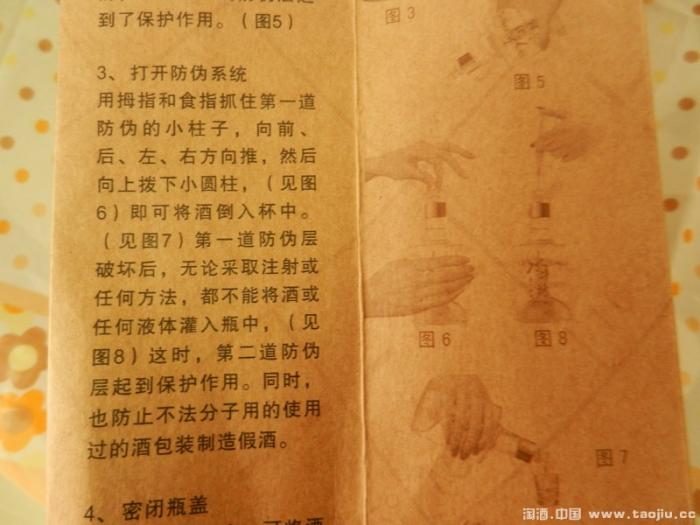 到了保护作用。（图5）
3、打开防伪系统
用拇指和食指抓住第一道
防伪的小柱子，向前、
后、左、右方向推，然后
向上拨下小圆柱，（见图
6）即可将酒倒入杯中。
（见图7）第一道防伪层
破坏后，无论采取注射或
任何方法，都不能将酒或
任何液体灌入瓶中，（见
图8）这时，第二道防伪
层起到保护作用。同时，
也防止不法分子用的使用
过的酒包装制造假酒。
4、密闭瓶盖
图3
图5
图6
图8
图7
淘酒.中国 www.taojiu.cc